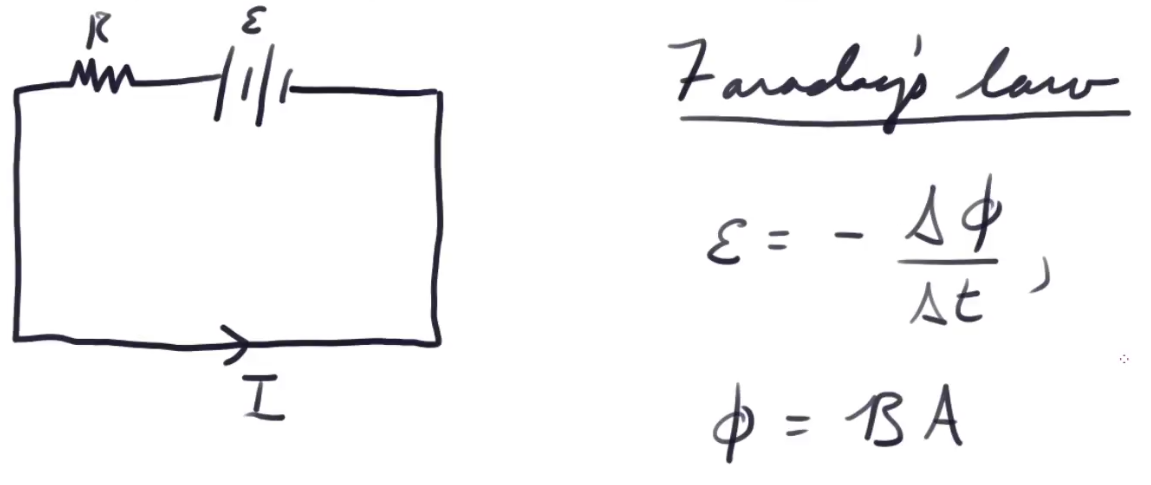 R
ε
I
Faraday's law
ε = - Δφ/Δt ,
φ = BA